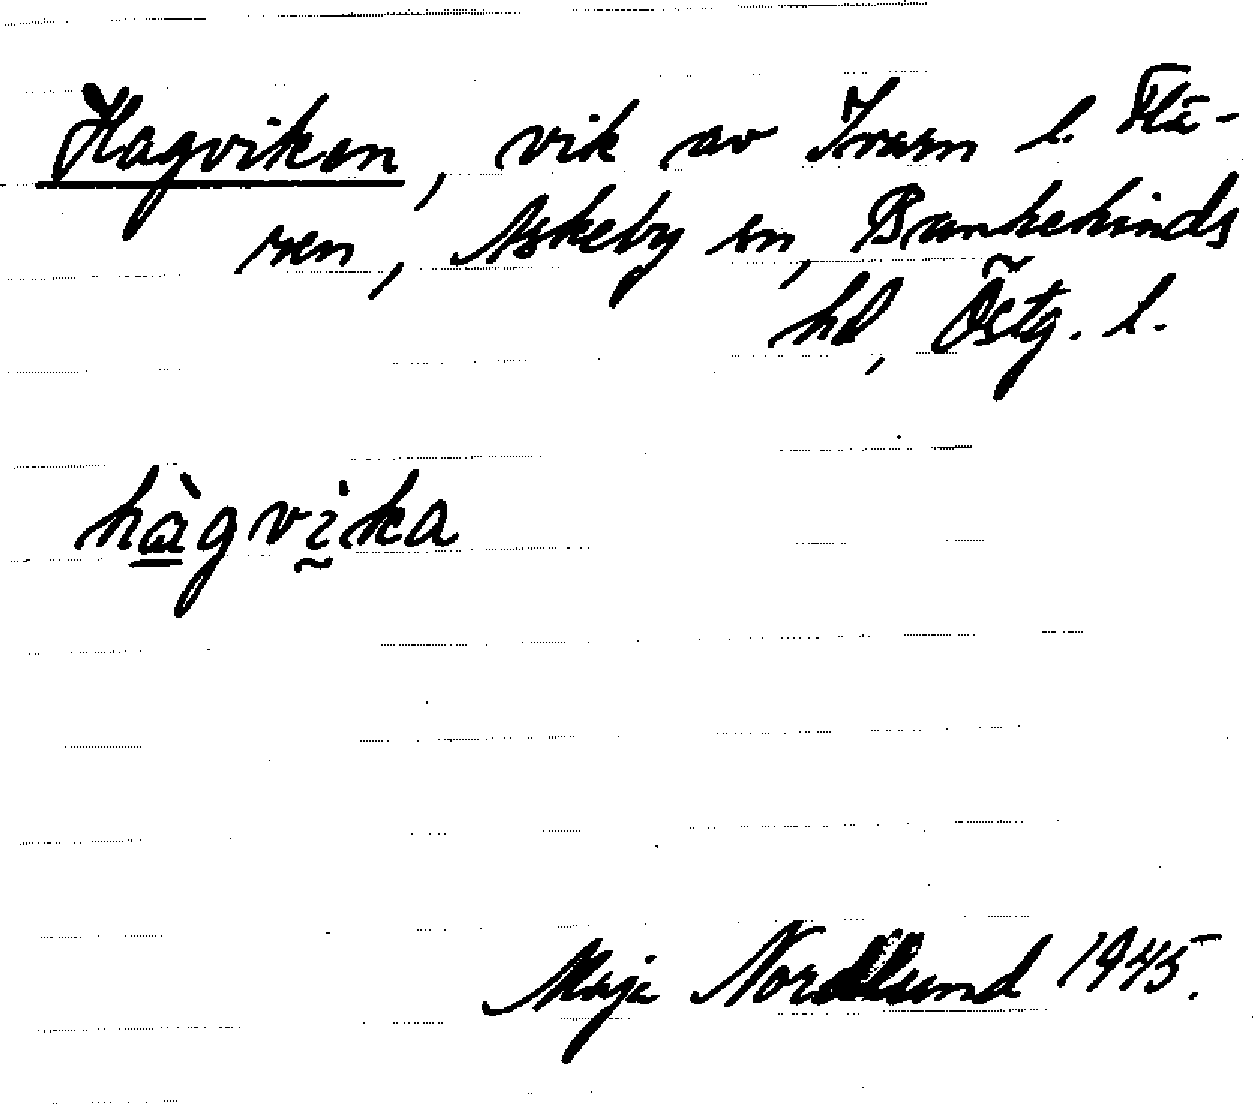 Hagviken, vik av Ivarn l. Flä-
ren, Askeby sn, Bankekinds
hd, Östg. l.
hàgvika
Maja Nordlund 1945.